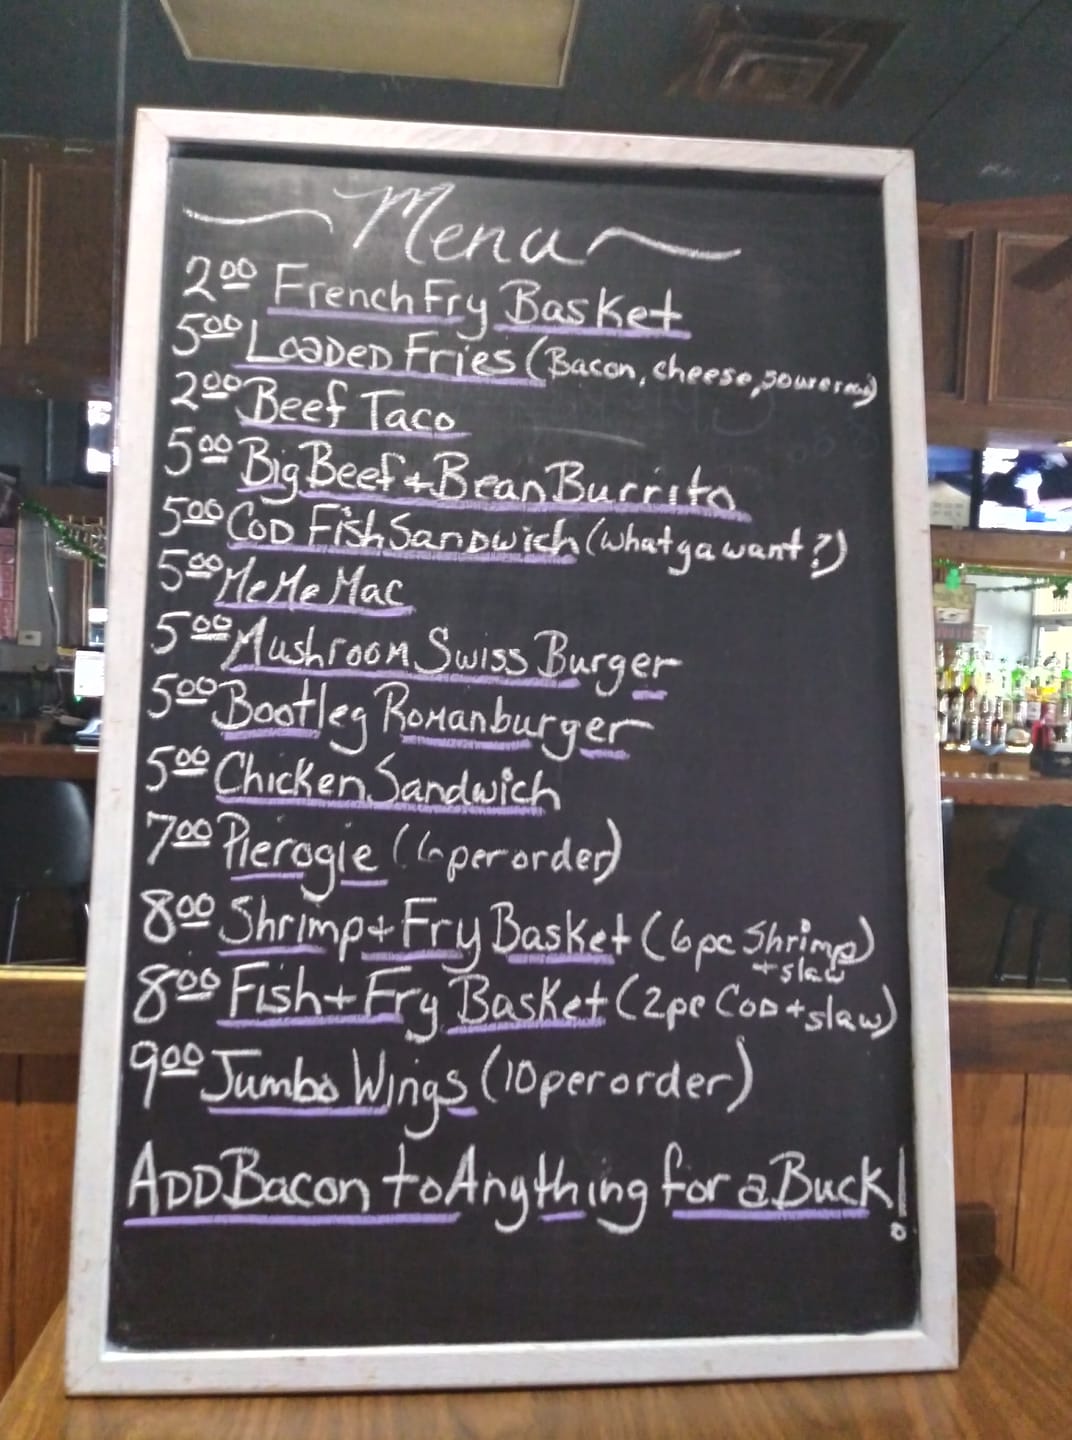 Menu
2.00 French Fry Basket
5.00 Loaded Fries (Bacon, cheese, sourcream)
2.00 Beef Taco
5.00 Big Beef + Bean Burrito
5.00 Cod Fish Sandwich (what ya want?)
5.00 MeMe Mac
5.00 Mushroom Swiss Burger
5.00 Bootleg Romanburger
5.00 Chicken Sandwich
7.00 Pierogie (6 per order)
8.00 Shrimp + Fry Basket (6pc Shrimp
+ slaw)
8.00 Fish + Fry Basket (2pc Cod + slaw)
9.00 Jumbo Wings (10 per order)
ADD Bacon to Anything for a Buck!